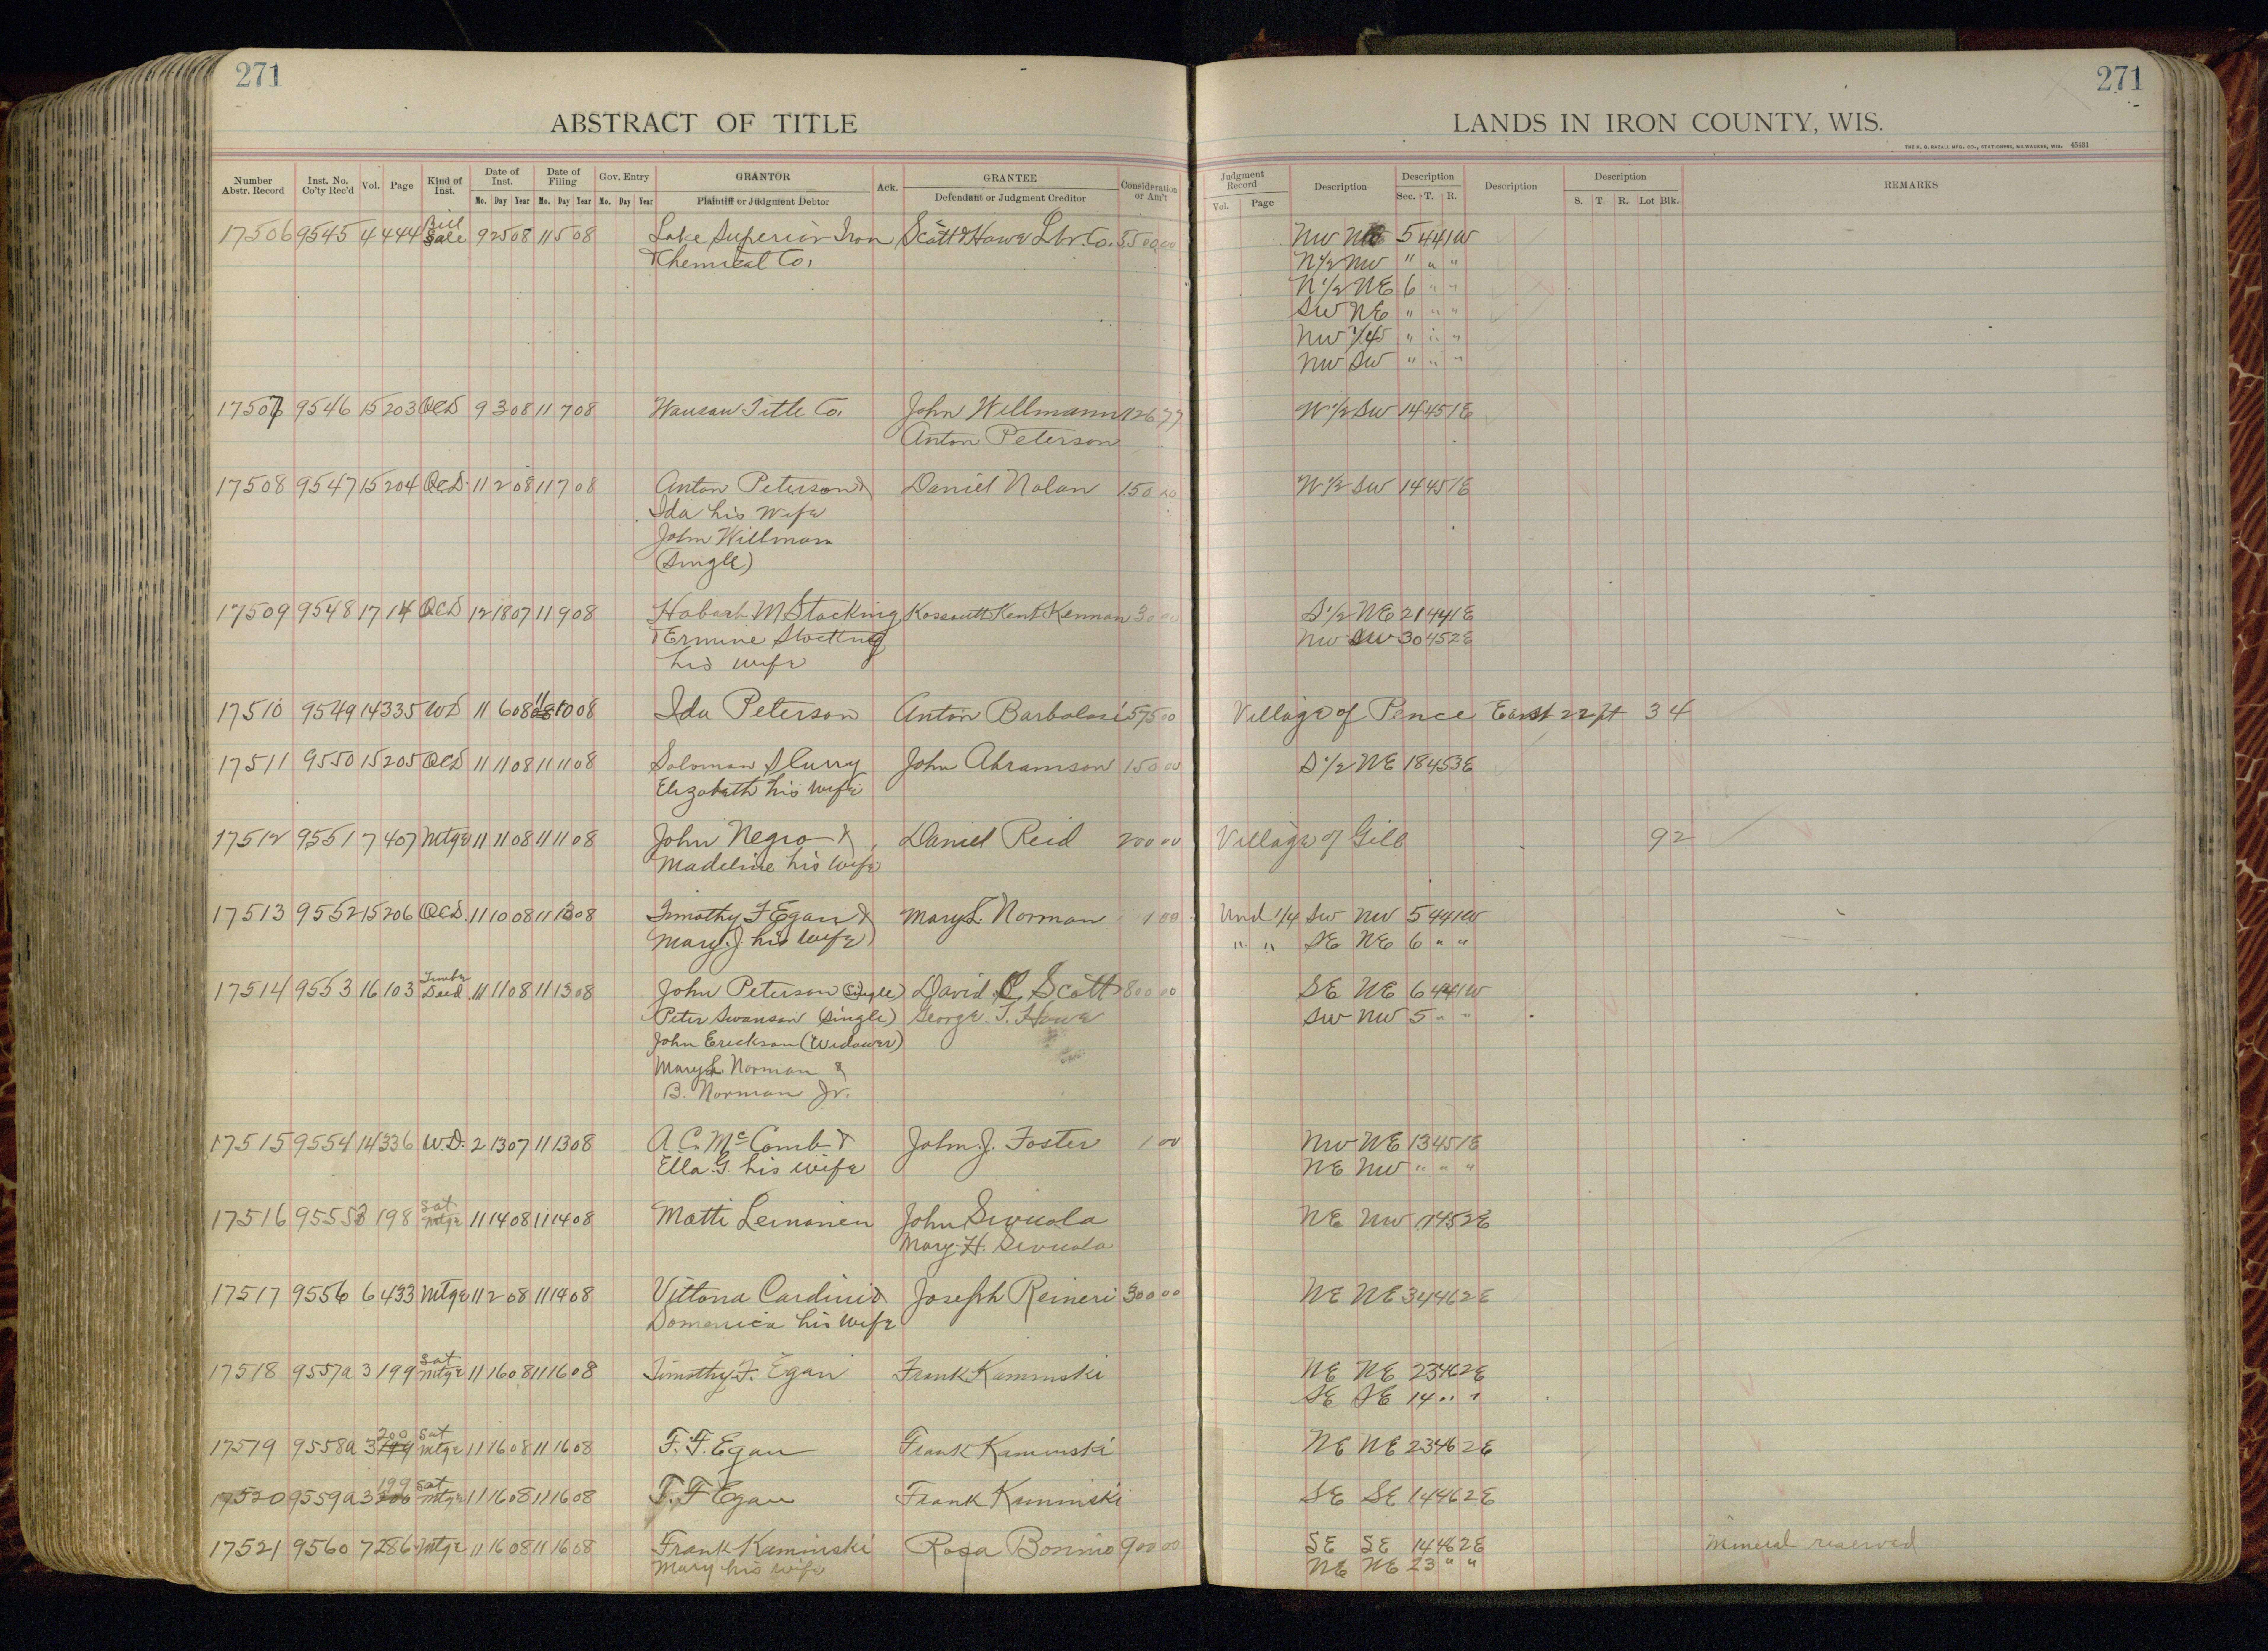 271
271
ABSTRACT OF TITLE
LANDS IN IRON COUNTY, WIS.
THE H. G. RAZALL MFG. CO., STATIONERS, MILWAUKEE, WIS. 45431
Number Abstr. Record Inst. No. Co'ty Rec'd Vol. Page Kind of Inst. Date of Inst. Mo. Day Year Date of Filing Mo. Day Year Gov. Entry Mo. Day Year GRANTOR Plaintiff or Judgment Debtor Ack. GRANTEE Defendant or Judgment Creditor Consideration or Am't
Judgment Record Vol. Page Description Description Sec. T. R. Description Description S. T. R. Lot Blk. REMARKS
17506 9545 4 444 Bill Sale 9 25 08 11 5 08 Lake Superior Iron Scott & Howe Lbr. Co. 5500 00 NW 5 44 1W
& Chemical Co. N 1/2 NW " " "
N 1/2 NE 6 " "
SW NE " " "
NW 1/4 " " "
NW SW " " "
17507 9546 15 203 QCD 9 3 08 11 7 08 Wausau Title Co. John Willmann 126 77 W 1/2 SW 14 45 1E
Anton Peterson
17508 9547 15 204 QCD 11 2 08 11 7 08 Anton Peterson & Daniel Nolan 150 00 W 1/2 SW 14 45 1E
Ida his Wife
John Willman
(Single)
17509 9548 17 14 QCD 12 18 07 11 9 08 Hobart M Stocking Kossouth Kent Kennan 30 00 S 1/2 NE 21 44 1E
& Ermine Stocking NW SW 30 45 2E
his wife
17510 9549 14 335 WD 11 6 08 11 10 08 Ida Peterson Anton Barbalasi 575 00 Village of Pence East 22 ft 3 4
17511 9550 15 205 QCD 11 11 08 11 11 08 Soloman S Curry John Abramson 150 00 S 1/2 NE 18 45 3E
Elizabeth his Wife
17512 9551 7 407 Mtge 11 11 08 11 11 08 John Negro & Daniel Reid 200 00 Village of Gile 92
Madeline his Wife
17513 9552 15 206 QCD 11 10 08 11 13 08 Timothy F Egan & Mary L. Norman 1 00 Und 1/4 SW NW 5 44 1W
Mary J. his Wife " " SE NE 6 " "
17514 9553 16 103 Timber Deed 11 11 08 11 13 08 John Peterson (Single) David C Scott 800 00 SE NE 6 44 1W
Peter Swanson (Single) George. T. Howe SW NW 5 " "
John Erickson (Widower)
Mary L. Norman &
B. Norman Jr.
17515 9554 14 336 W.D. 2 13 07 11 13 08 A. C. McComb & John J. Foster 1 00 NW NE 13 45 1E
Ella G. his wife NE NW " " "
17516 9555 3 198 Sat Mtge 11 14 08 11 14 08 Matti Leinonen John Sivuala NE NW 1 45 2E
Mary H. Sivuala
17517 9556 6 433 Mtge 11 2 08 11 14 08 Vittoria Cardini & Joseph Reineri 300 00 NE NE 34 46 2E
Domenica his wife
17518 9557a 3 199 Sat Mtge 11 16 08 11 16 08 Timothy F. Egan Frank Kaminski NE NE 23 46 2E
SE SE 14 " "
17519 9558a 3 200 Sat Mtge 11 16 08 11 16 08 T. F. Egan Frank Kaminski NE NE 23 46 2E
17520 9559a 3 199 Sat Mtge 11 16 08 11 16 08 T. F Egan Frank Kaminski SE SE 14 46 2E
17521 9560 7 286 Mtge 11 16 08 11 16 08 Frank Kaminski Rosa Bonino 900 00 SE SE 14 46 2E Mineral reserved
Mary his wife NE NE 23 " "